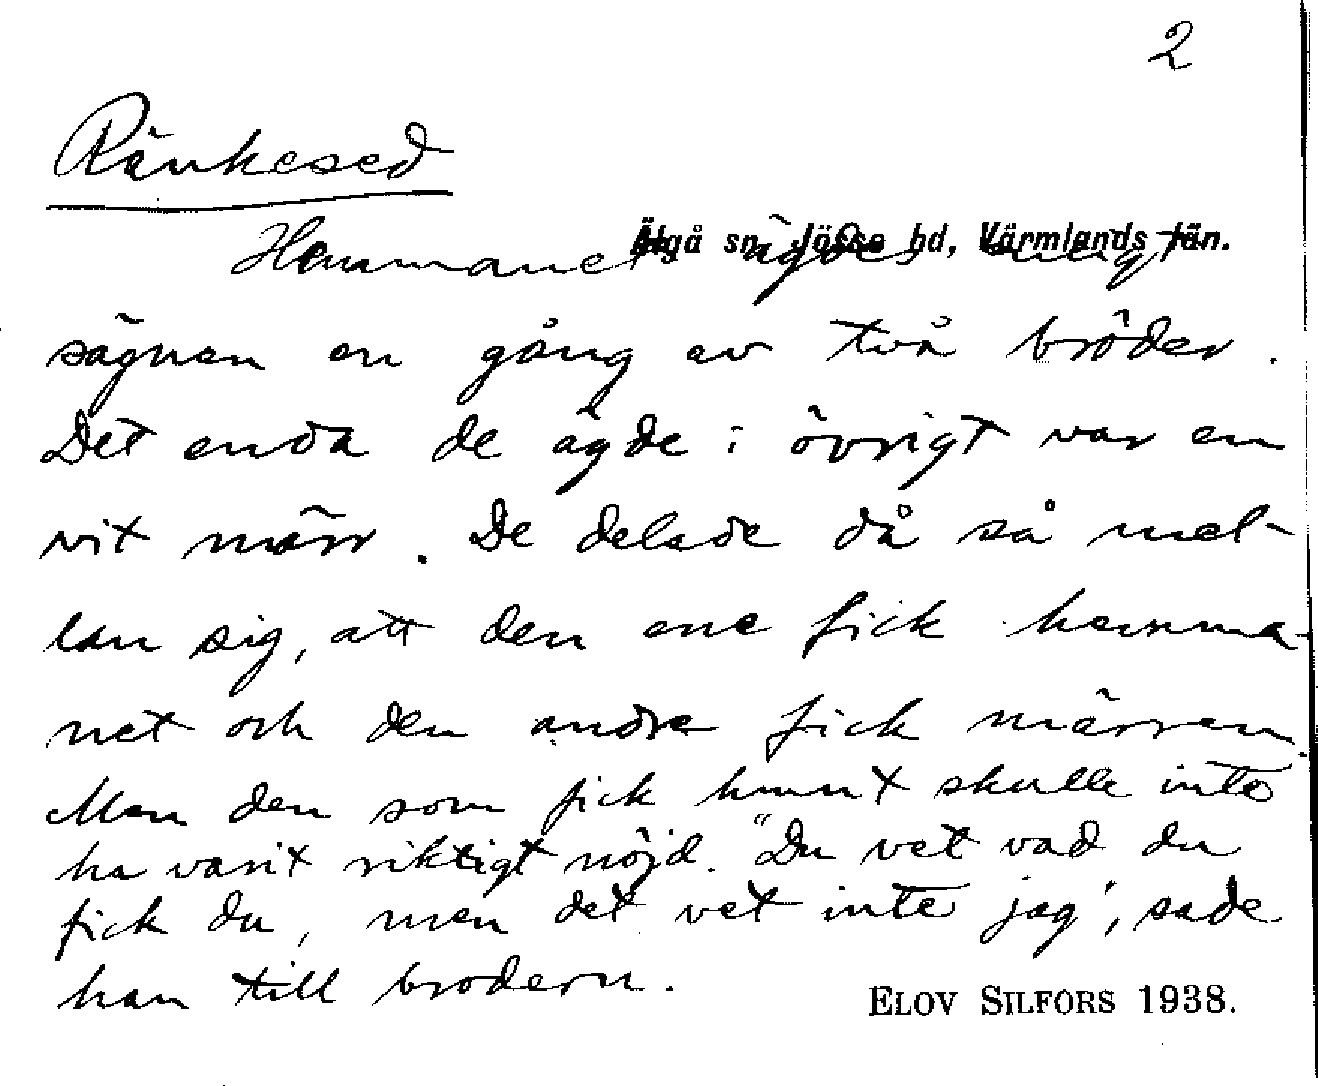 2
Ränkesed
Älgå sn, Jösse hd, Värmlands län.
Hemmanet ägdes enligt
sägnen en gång av två bröder.
Det enda de ägde i övrigt var en
vit märr. De delade då så mel-
lan sig, att den ene fick hemma-
net och den andre fick märren.
Men den som fick hmnt skulle inte
ha varit riktigt nöjd. "Du vet vad du
fick du, men det vet inte jag", sade
han till brodern.
ELOV SILFORS 1938.